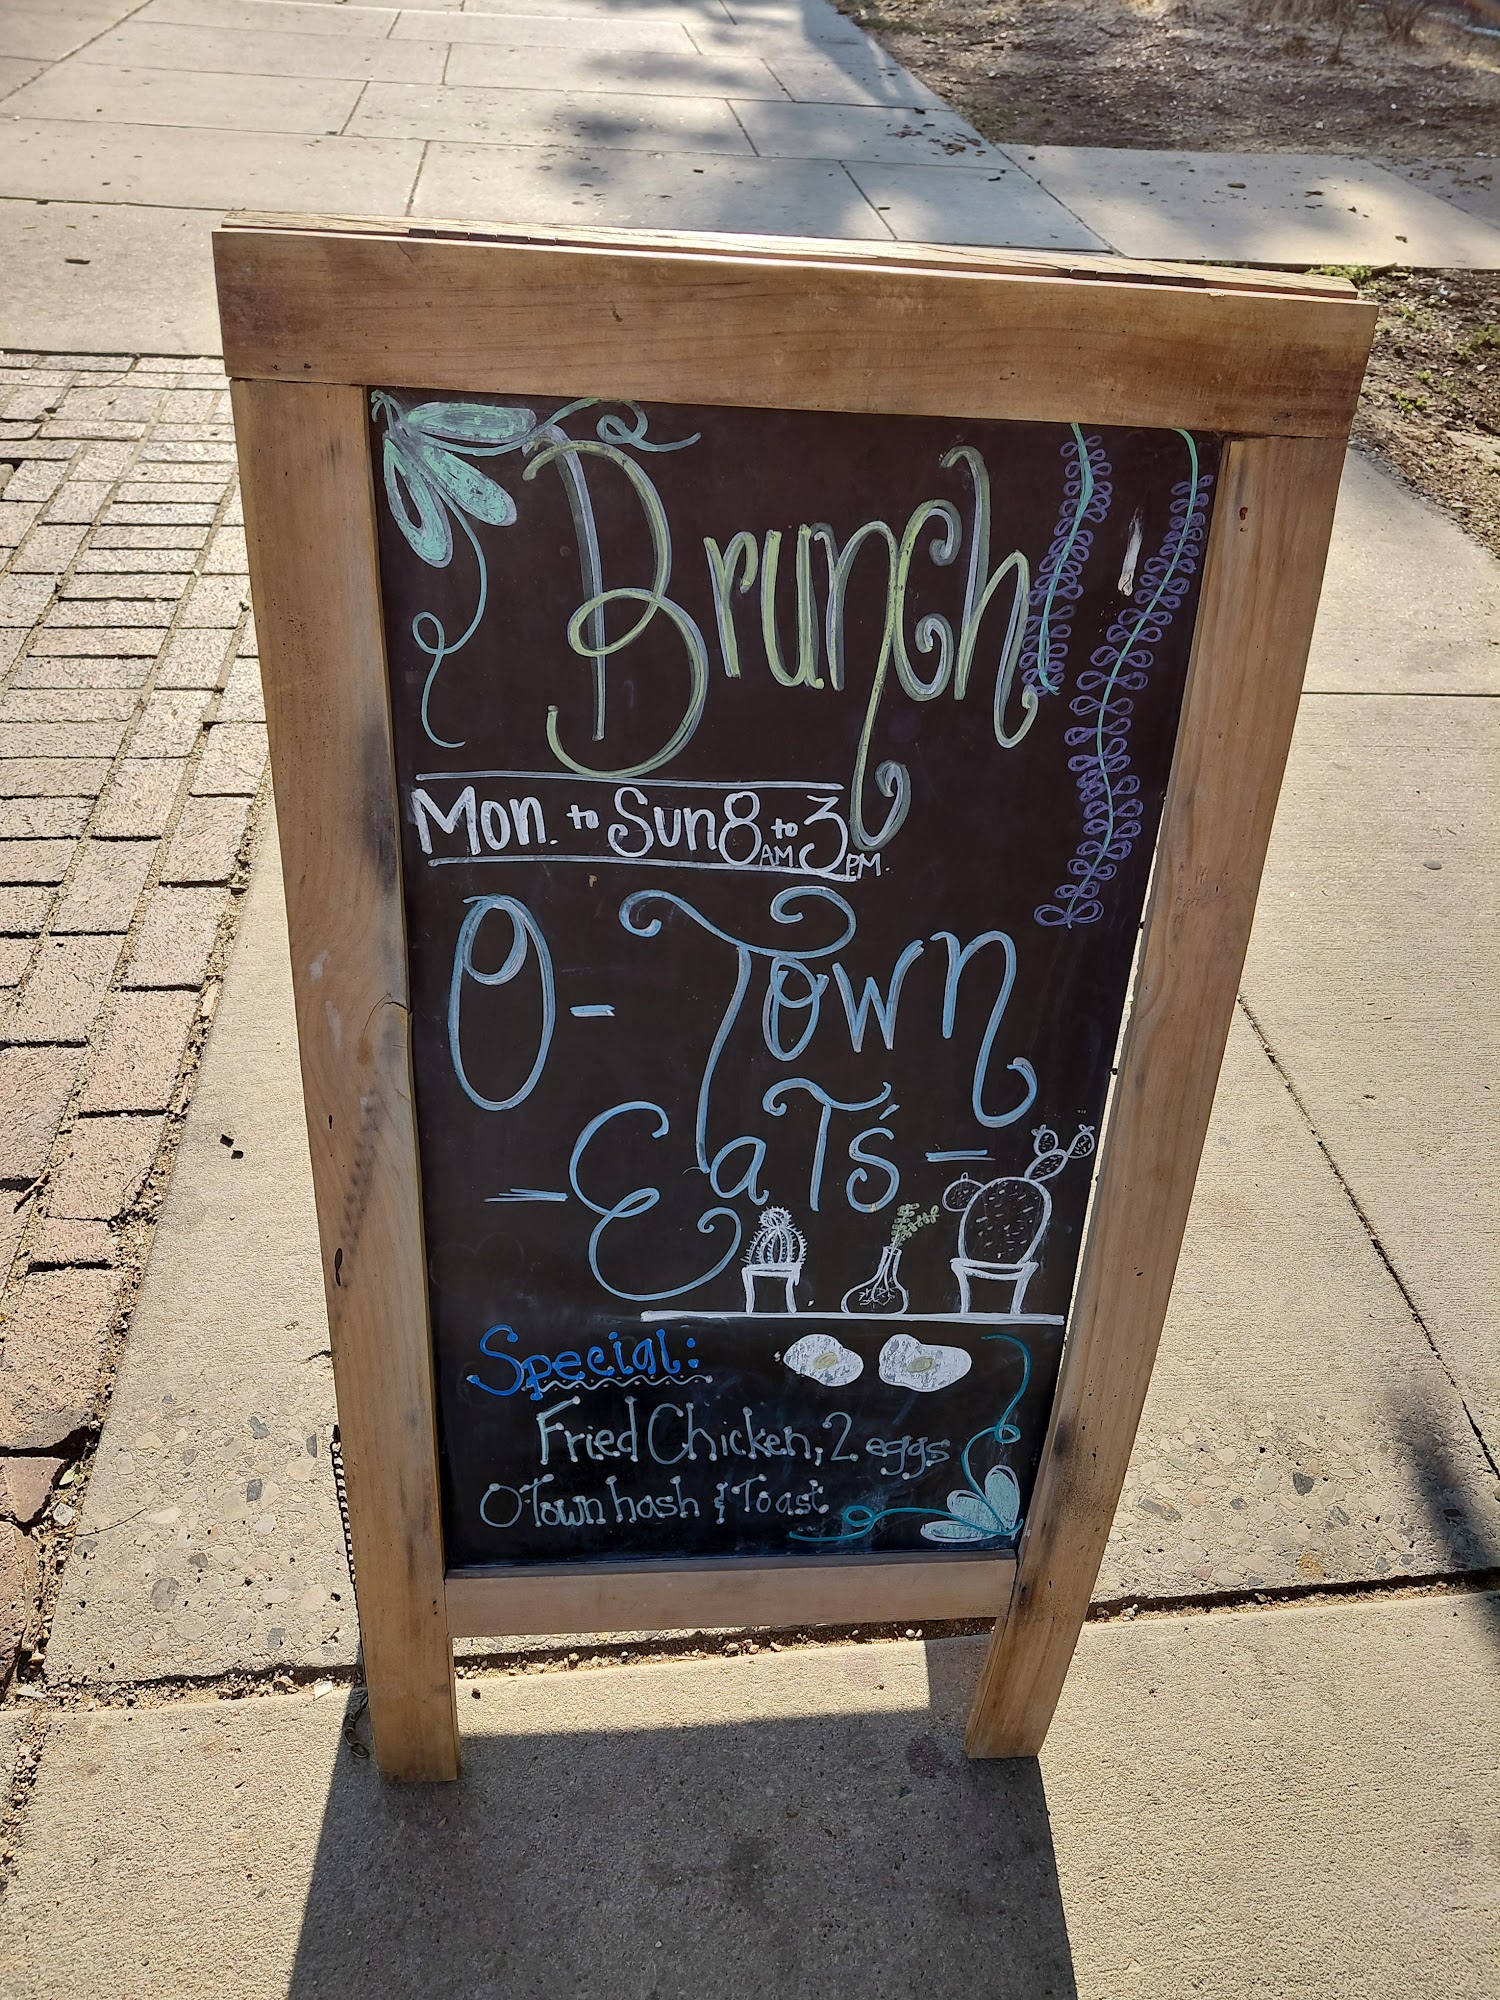 Brunch!
Mon. to Sun 8 AM. to 3 PM.
O-Town
-Eat's-
Special:
Fried Chicken, 2 eggs
OTown hash & Toast